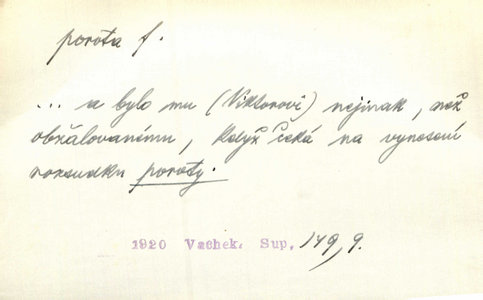 porota f.
... a bylo mu (Viktorovi) nejinak, než
obžalovanému, když čeká na vynesení
rozsudku poroty.
1920 Vachek. Sup. 149, 9.